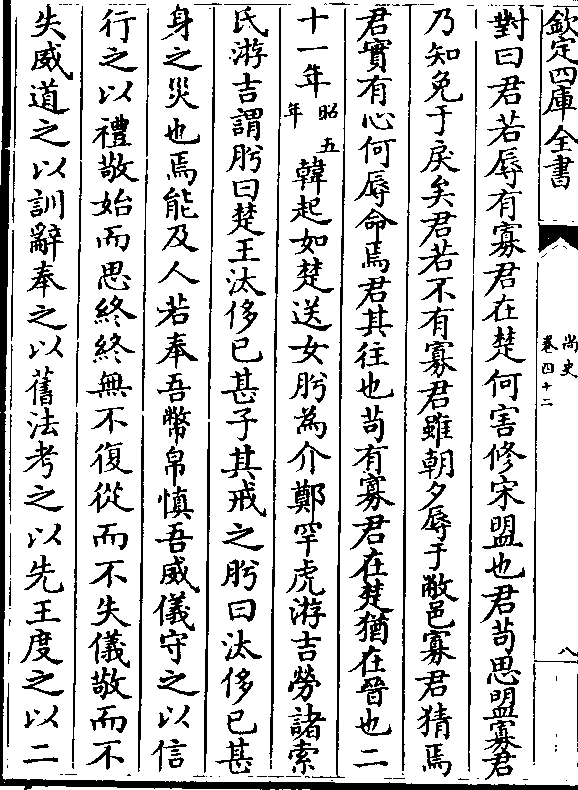 欽定四庫全書
尚史
卷四十二
八
對曰君若辱有寡君在楚何害修宋盟也君苟思盟寡君
乃知免于戾矣君若不有寡君雖朝夕辱于敝邑寡君猜焉
君實有心何辱命焉君其往也苟有寡君在楚猶在晉也二
十一年昭五年韓起如楚送女肸為介鄭罕虎游吉勞諸索
氏游吉謂肸曰楚王汰侈已甚子其戒之肸曰汰侈已甚
身之災也焉能及人若奉吾幣帛慎吾威儀守之以信
行之以禮敬始而思終終無不復從而不失儀敬而不
失威道之以訓辭奉之以舊法考之以先王度之以二